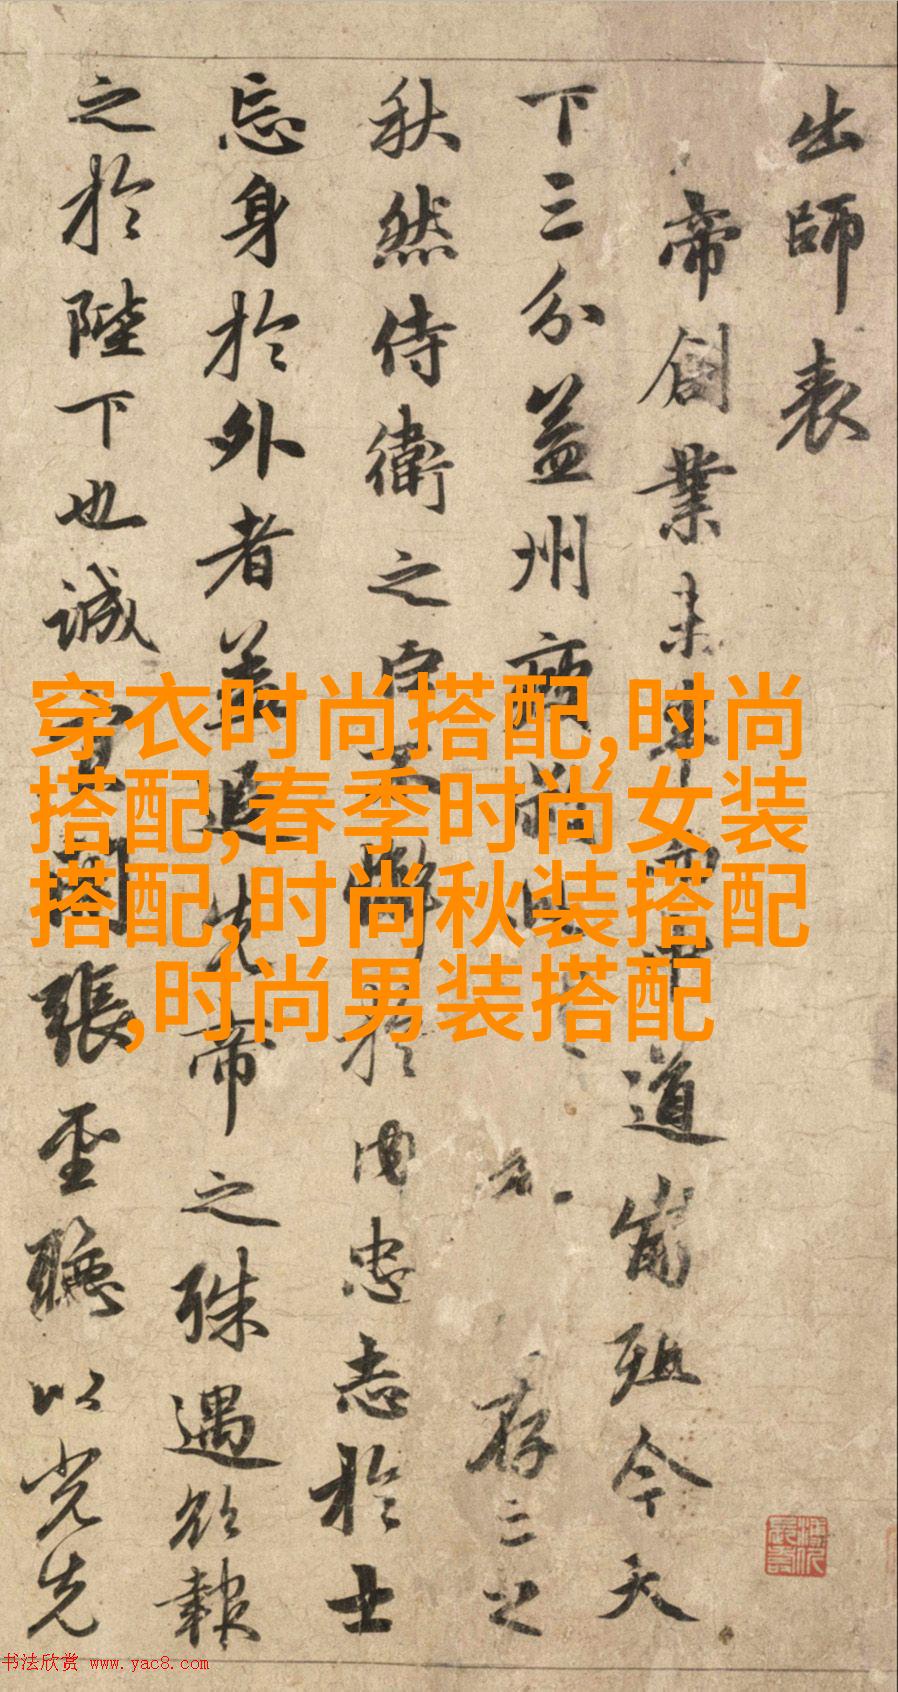 出師表
帝創業未半中道崩殂今天
下三分益州疲存亡之
秋然侍衛之臣不懈於内忠志於士
忘身於外者蓋追先帝之殊遇欲報
之於陛下也誠宜開張聖聽以光先
穿衣时尚搭配,时尚
搭配,春季时尚女装
搭配,时尚秋装搭配
,时尚男装搭配
书法欣赏 www.yac8.com